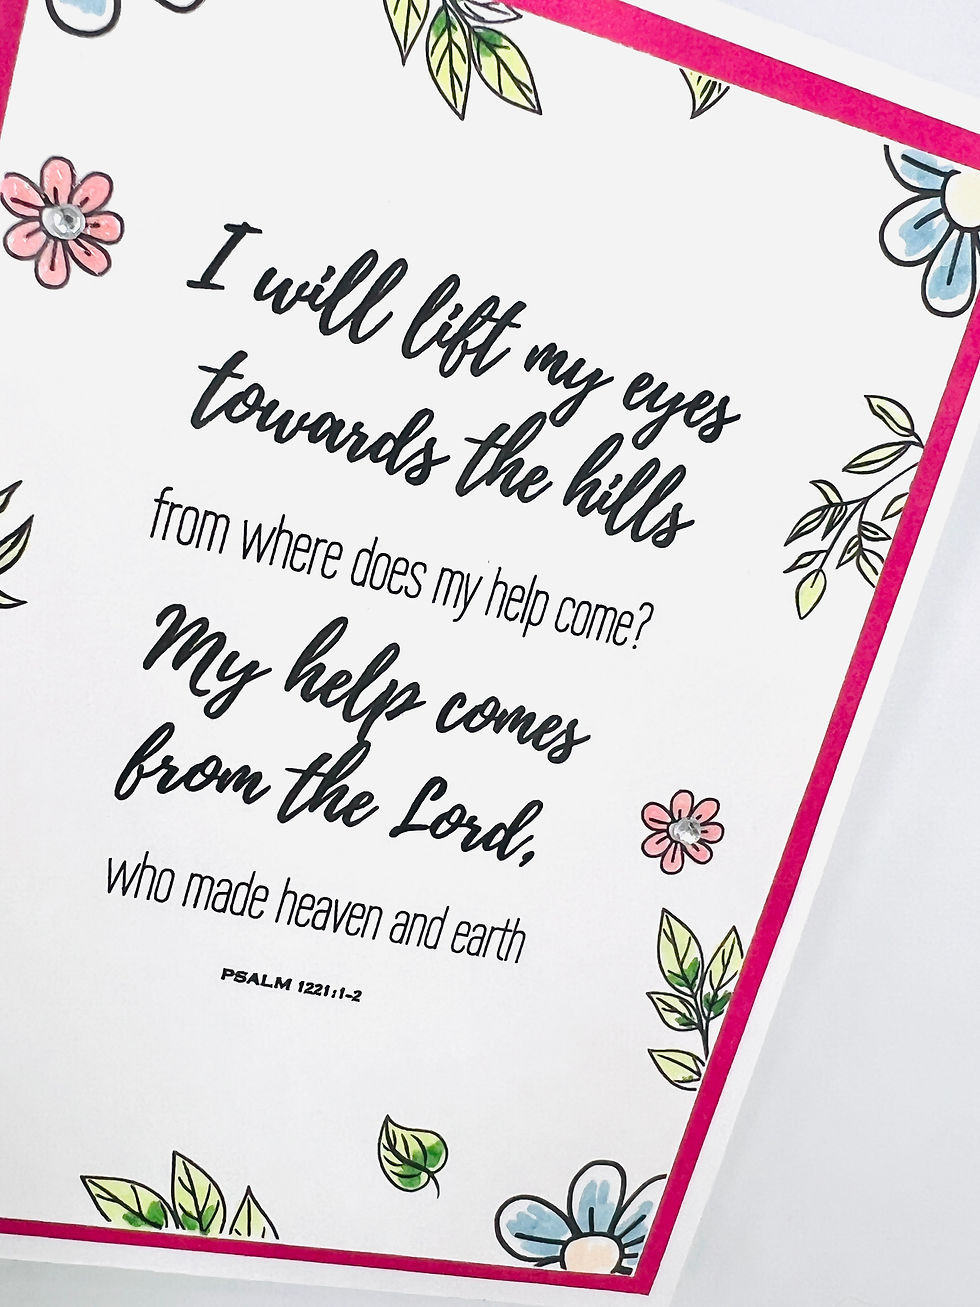 I will lift my eyes
towards the hills
from where does my help come?
My help comes
from the Lord,
who made heaven and earth
PSALM 1221:1-2